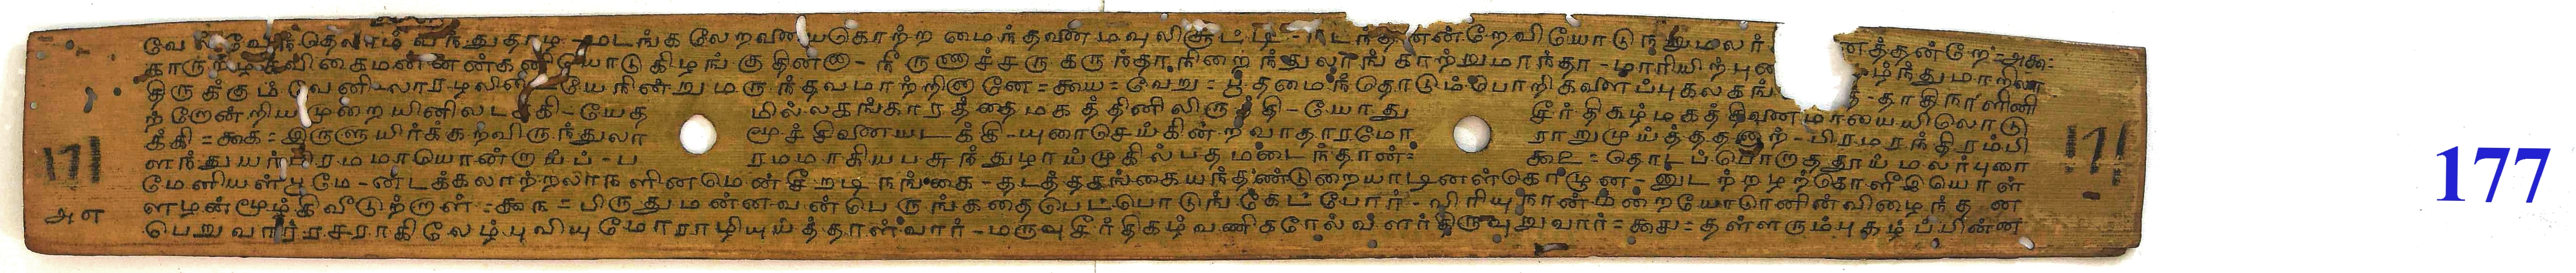 வே வேந தெலாம வநதுதாழ - மடங்க லேறவணையகொற்ற மைந்தவண மவுலிசூட்டி - நடந்த னன்றேவியோடு நறுமலர் னத்தன்றே = அகூ =
காருந கவிகைமனனன்கனியோடு கிழங்கு தின்று - நீ ருணுச்சருகருந்தா நிறைந்துலாங் காற்றுமாந்தா - மாரியிற்புன ழ்ந்துமாறிலா
திருககும் வேனிலாரழலி யேநின்று மருந்தவமாற்றினானே = கூய = வேறு = பூதமைந்தொடும்பொறிகவளப்புகலகங் த - தாதிநாளினி
ற்றேன்றியமுறையினிலடககி - யேத மில்லகங்காரத்தை மகத்தினிலிருத்தி - யோது சீர்திகழ்மகத்தினைமாயையிலொடு
க்கி = கூக = இருளுயிர்க்குறவிருந்துலா மூச்சினையடக்கி - யுரைசெய்கின்றவாதாரமோ ராறுமுய்த்ததனுற் - பிரமரந்திரம்பி
ளந்துயர்பிரமமாயொன்றுய்ப் - ப ரமமாகியபசுந்துழாய்முகில்பதமடைந்தான் = கூஉ = தொடப்பொறாததூய்மலர்புரை
மேனியள்பூமே - னடக்கலாற்றலாநளினமென்சீறடி நங்கை - தடத்தகங்கையந்தண்டுறையாடினள்கொழுந - னுடற்றழற்கொளீஇயொள்
ளழன்மூழ்கிவீடுற்றாள் = கூ௩ = பிருதுமன்னவன்பெருங்கதைபெட்பொடுங்கேட்போர் - விரியுநான்மறையோரெனின்விழைந்த ன
பெறுவார்ரசராகிலேழ்புவியுமோராழியுய்த்தாள்வார் - மருவுசீர்திகழ்வணிகரேல்வளர்திருவுறுவார் = கூச = தள்ளரும்புகழ்ப்பின்ன
171
171
அள
177